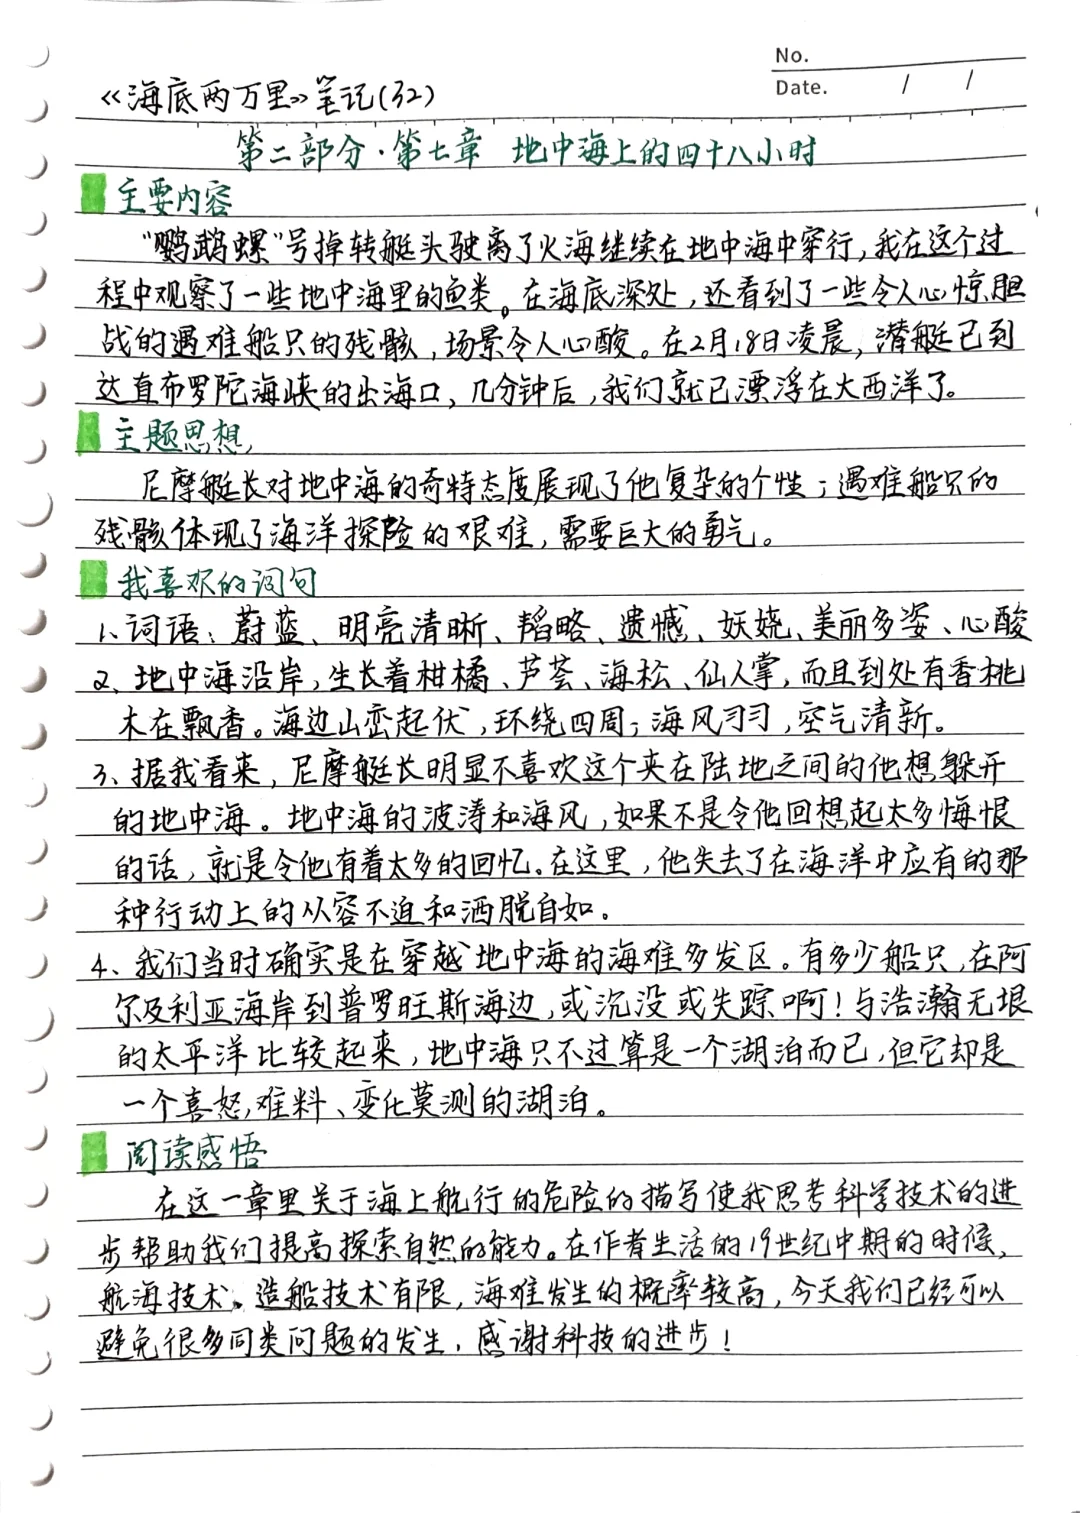 No.
Date. / /
《海底两万里》笔记(32)
第二部分·第七章 地中海上的四十八小时
主要内容
“鹦鹉螺”号掉转艇头驶离了火海继续在地中海中穿行,我在这个过
程中观察了一些地中海里的鱼类。在海底深处,还看到了一些令人心惊胆
战的遇难船只的残骸,场景令人心酸。在2月18日凌晨,潜艇已到
达直布罗陀海峡的出海口,几分钟后,我们就已漂浮在大西洋了。
主题思想
尼摩艇长对地中海的奇特态度展现了他复杂的个性;遇难船只的
残骸体现了海洋探险的艰难,需要巨大的勇气。
我喜欢的词句
1、词语:蔚蓝、明亮清晰、韬略、遗憾、妖娆、美丽多姿、心酸
2、地中海沿岸,生长着柑橘、芦荟、海松、仙人掌,而且到处有香桃
木在飘香。海边山峦起伏,环绕四周;海风习习,空气清新。
3、据我看来,尼摩艇长明显不喜欢这个夹在陆地之间的他想躲开
的地中海。地中海的波涛和海风,如果不是令他回想起太多悔恨
的话,就是令他有着太多的回忆。在这里,他失去了在海洋中应有的那
种行动上的从容不迫和洒脱自如。
4、我们当时确实是在穿越地中海的海难多发区。有多少船只,在阿
尔及利亚海岸到普罗旺斯海边,或沉没或失踪啊!与浩瀚无垠
的太平洋比较起来,地中海只不过算是一个湖泊而已,但它却是
一个喜怒难料、变化莫测的湖泊。
阅读感悟
在这一章里关于海上航行的危险的描写使我思考科学技术的进
步帮助我们提高探索自然的能力。在作者生活的19世纪中期的时候,
航海技术、造船技术有限,海难发生的概率较高,今天我们已经可以
避免很多同类问题的发生,感谢科技的进步!